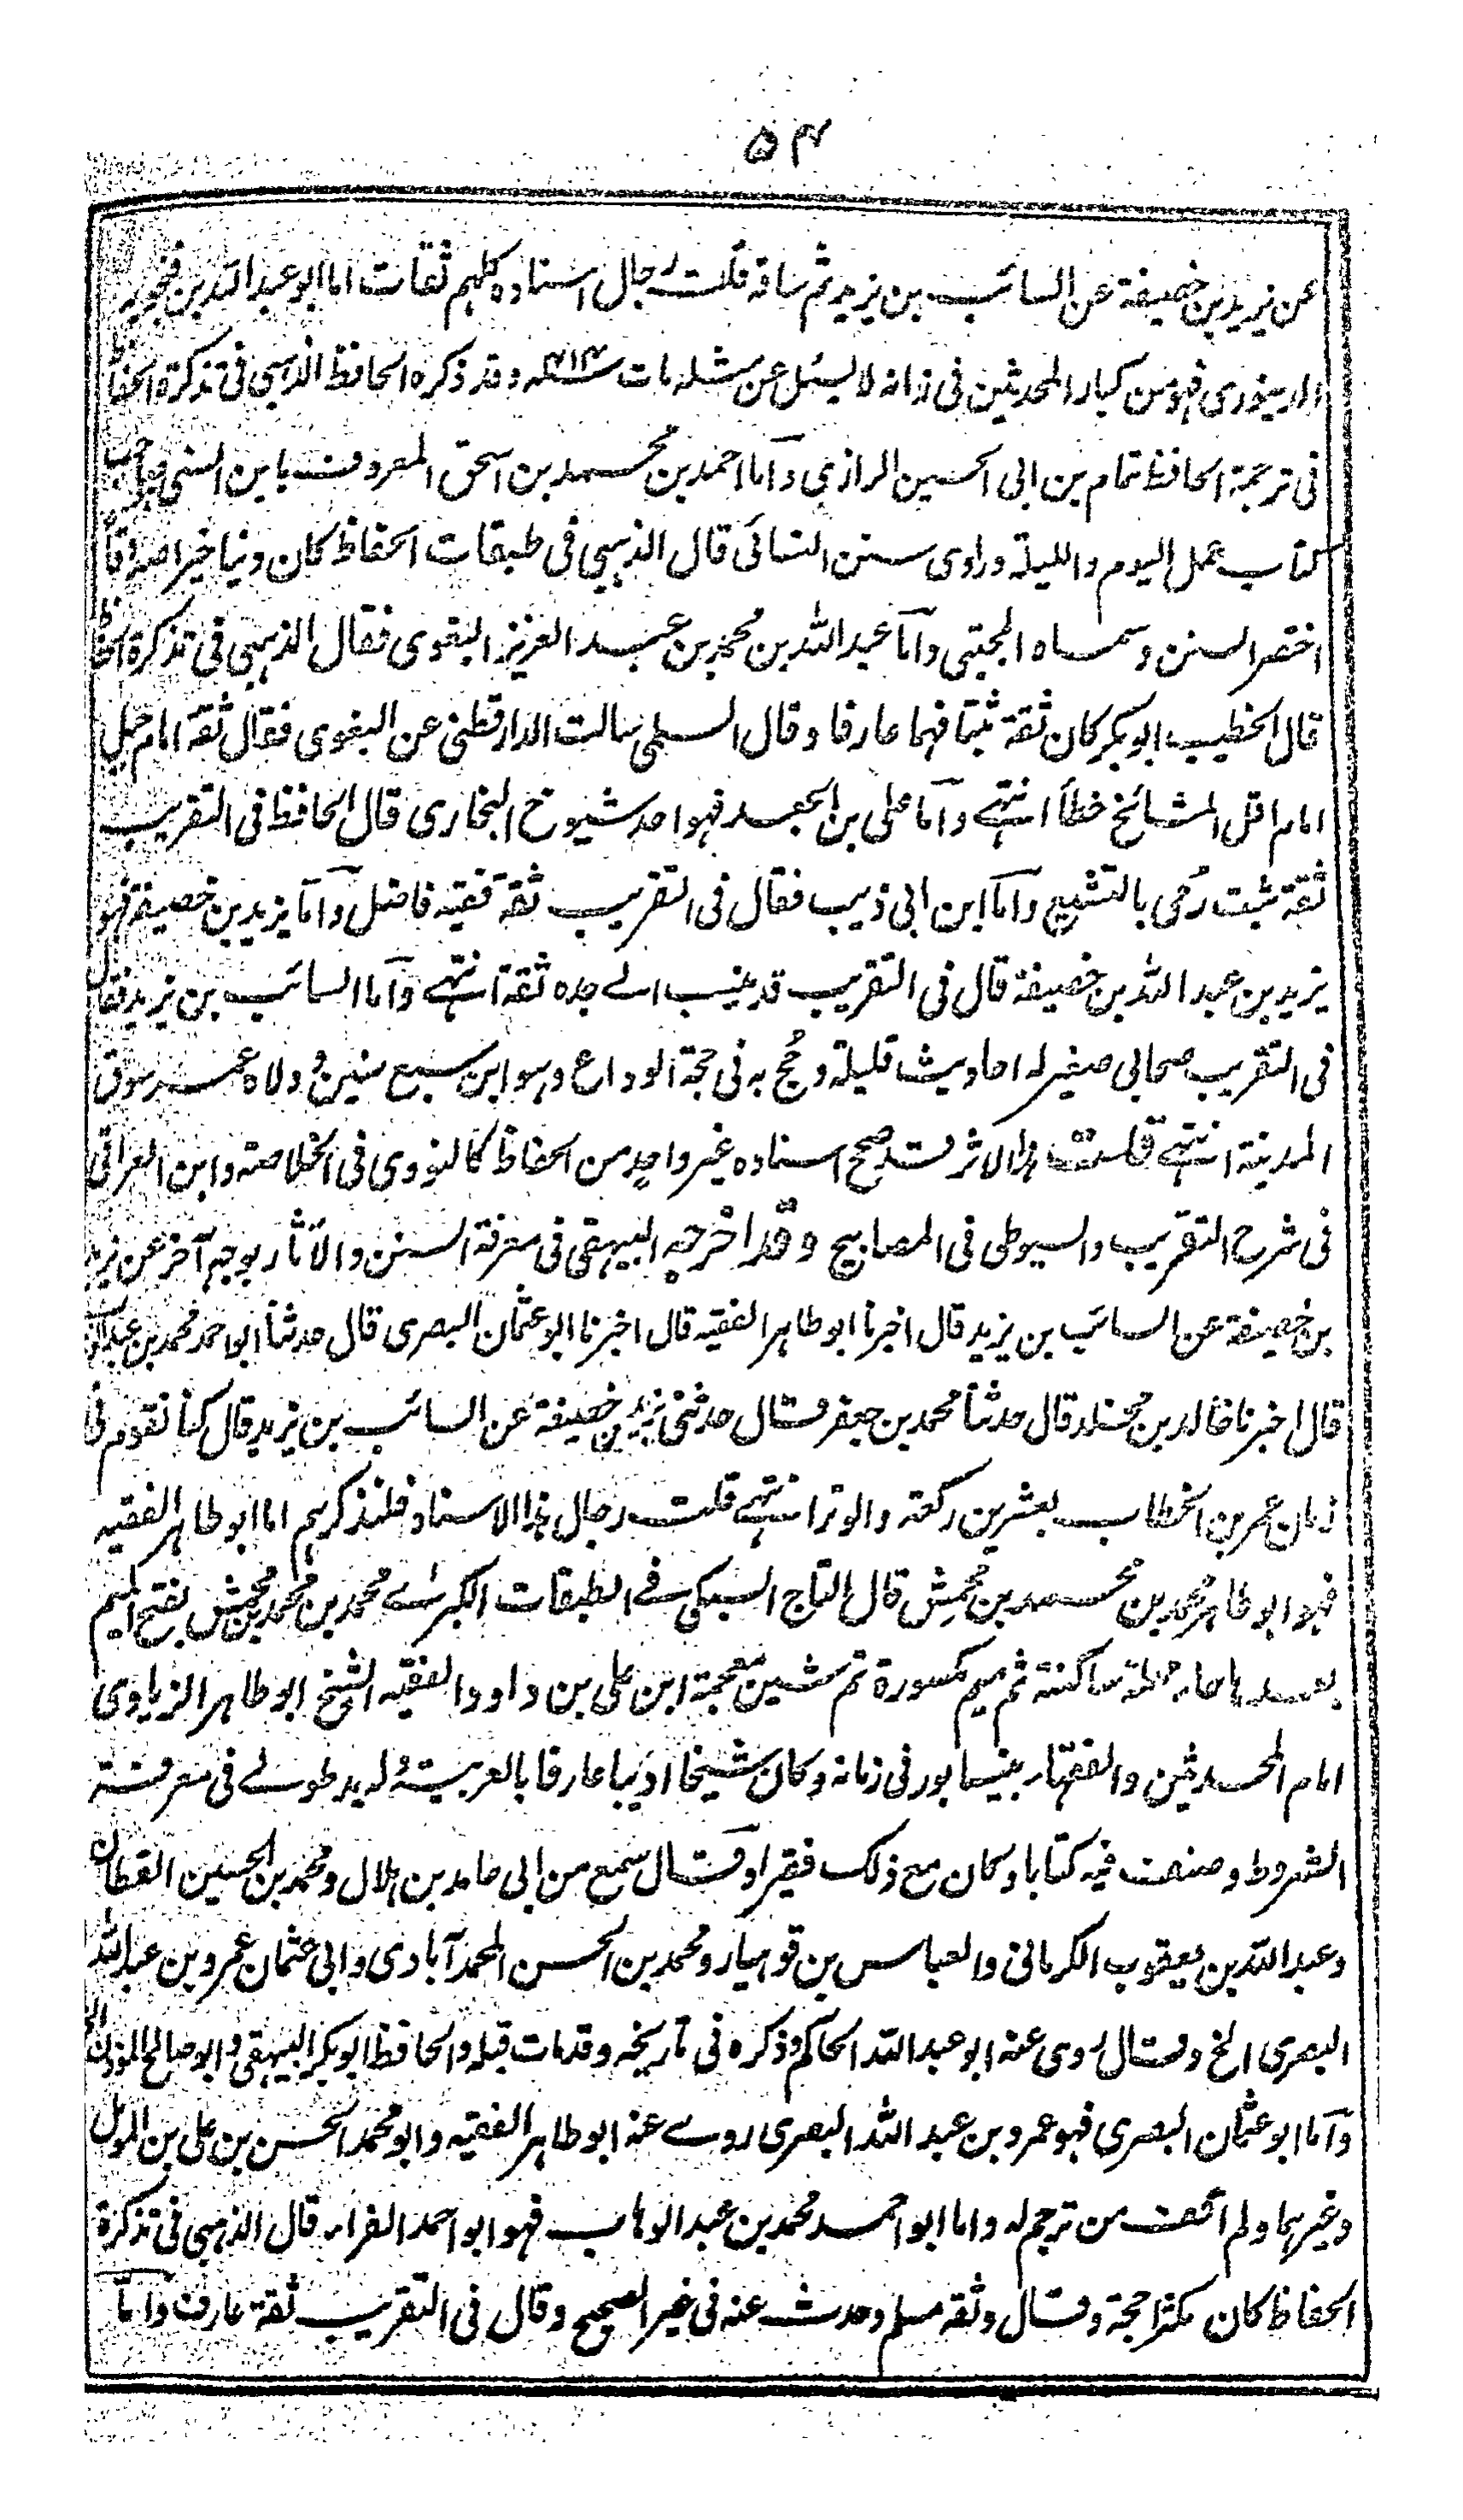 ۵۴
عن يزيد بن خصيفة عن السائب بن يزيد ثم ساقه قلت رجال اسناده كلهم ثقات اما ابو عبد الله بن فنجويه
الدينوري فهو من كبار المحدثين في زمانه لا يسئل عن مثله مات سنة ۴۱۴ وقد ذكره الحافظ الذهبي في تذكرة الحفاظ
في ترجمة الحافظ تمام بن ابي الحسين الرازي وأما احمد بن محمد بن اسحق المعروف بابن السني صاحب
كتاب عمل اليوم والليلة وراوي سنن النسائي قال الذهبي في طبقات الحفاظ كان دينا خيرا صدوقا
اختصر السنن وسماه المجتبى وأما عبد الله بن محمد بن عبد العزيز البغوي فقال الذهبي في تذكرة الحفاظ
قال الخطيب ابو بكر كان ثقة ثبتا فهما عارفا وقال السلمي سالت الدارقطني عن البغوي فقال ثقة امام جبل
امام اقل المشائخ خطأ انتهے وأما علي بن الجعد فهو احد شيوخ البخاري قال الحافظ في التقريب
ثقة ثبت رُمي بالتشيع وأما ابن ابي ذيب فقال في التقريب ثقة فقيه فاضل وأما يزيد بن خصيفة فهو
يزيد بن عبد الله بن خصيفة قال في التقريب قد ينسب الے جده ثقة انتهے وأما السائب بن يزيد فقال
في التقريب صحابي صغير له احاديث قليلة وحُج به في حجة الوداع وهو ابن سبع سنين وولاه عمر سوق
المدينة انتهے قلت هذا الاثر قد صحح اسناده غير واحد من الحفاظ كالنووي في الخلاصة وابن العراقي
في شرح التقريب والسيوطي في المصابيح وقد اخرجه البيهقي في معرفة السنن والآثار بوجه آخر عن يزيد
بن خصيفة عن السائب بن يزيد قال اخبرنا ابو طاهر الفقيه قال اخبرنا ابو عثمان البصري قال حدثنا ابو احمد محمد بن عبد الوهاب
قال اخبرنا خالد بن مخلد قال حدثنا محمد بن جعفر قال حدثني يزيد بن خصيفة عن السائب بن يزيد قال كنا نقوم في
زمان عمر بن الخطاب بعشرين ركعة والوتر انتهے قلت رجال هذا الاسناد فلنذكرهم اما ابو طاهر الفقيه
فهو ابو طاهر محمد بن محمد بن مَحْمِش قال التاج السبكي في الطبقات الكبرے محمد بن محمد بن محمش بفتح الميم
بعدها حاء مهملة ساكنة ثم ميم مكسورة ثم شين معجمة ابن علي بن داود الفقيه الشيخ ابو طاهر الزيادي
امام المحدثين والفقهاء بنيسابور في زمانه وكان شيخا اديبا عارفا بالعربية له يد طولے في معرفة
الشروط وصنف فيه كتابا وكان مع ذلك فقيرا وقال سمع من ابي حامد بن بلال ومحمد بن الحسين القطان
وعبد الله بن يعقوب الكرماني والعباس بن قوهيار ومحمد بن الحسن المحمدآبادي وابي عثمان عمرو بن عبد الله
البصري الخ وقال روى عنه ابو عبد الله الحاكم وذكره في تاريخه وقد مات قبله والحافظ ابو بكر البيهقي وابو صالح المؤذن الخ
وأما ابو عثمان البصري فهو عمرو بن عبد الله البصري روے عنه ابو طاهر الفقيه وابو محمد الحسن بن علي بن المومل
وغيرهما ولم اقف من ترجم له واما ابو احمد محمد بن عبد الوهاب فهو ابو احمد الفراء قال الذهبي في تذكرة
الحفاظ كان مكثرا حجة وقال وثقه مسلم وحدث عنه في غير الصحيح وقال في التقريب ثقة عارف وأما